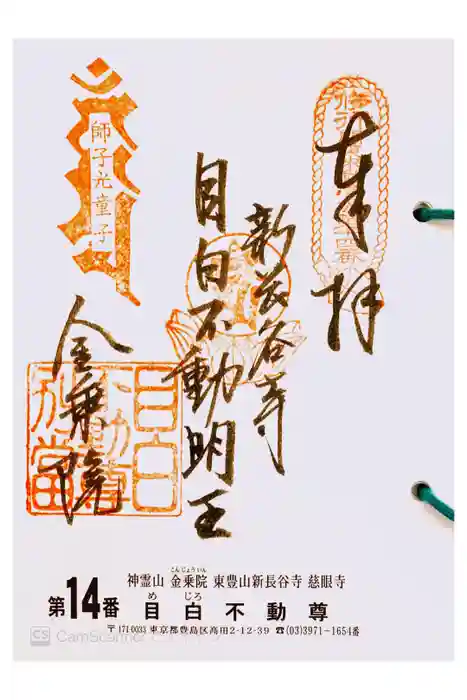 奉拝
新長谷寺
目白不動明王
金乗院
師子光童子
目白
不動尊
別当
神霊山 金乗院 東豊山新長谷寺 慈眼寺
こんじょういん
第14番 目白不動尊
め じろ
〒171-0033 東京都豊島区高田2-12-39 ☎(03)3971-1654番
CS CamScanner